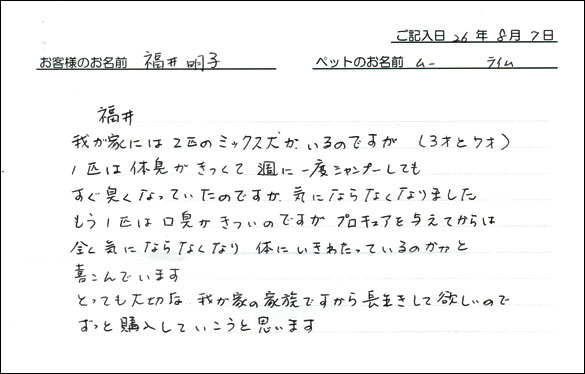 ご記入日 26 年 8月 7日
お客様のお名前 福井 明子 ペットのお名前 ムー ライム
福井
我が家には2匹のミックス犬が、いるのですが (3才と7才)
1匹は体臭がきつくて 週に一度シャンプーしても
すぐ臭くなっていたのですが、気にならなくなりました
もう1匹は口臭がきついのですが プロキュアを与えてからは
全く気にならなくなり 体にいきわたっているのかなと
喜こんでいます
とっても大切な 我が家の家族ですから長生きして欲しいので
ずっと購入していこうと思います